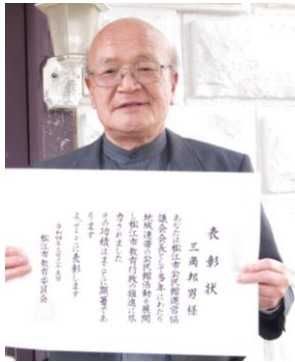 表彰状
三島邦男 様
あなたは松江市公民館運営協
議会会長として多年にわたり
地域連帯の公民館活動を展開
し松江市教育行政の推進に尽
力されました
その功績はまことに顕著であ
ります
よってここに表彰します
松江市教育委員会